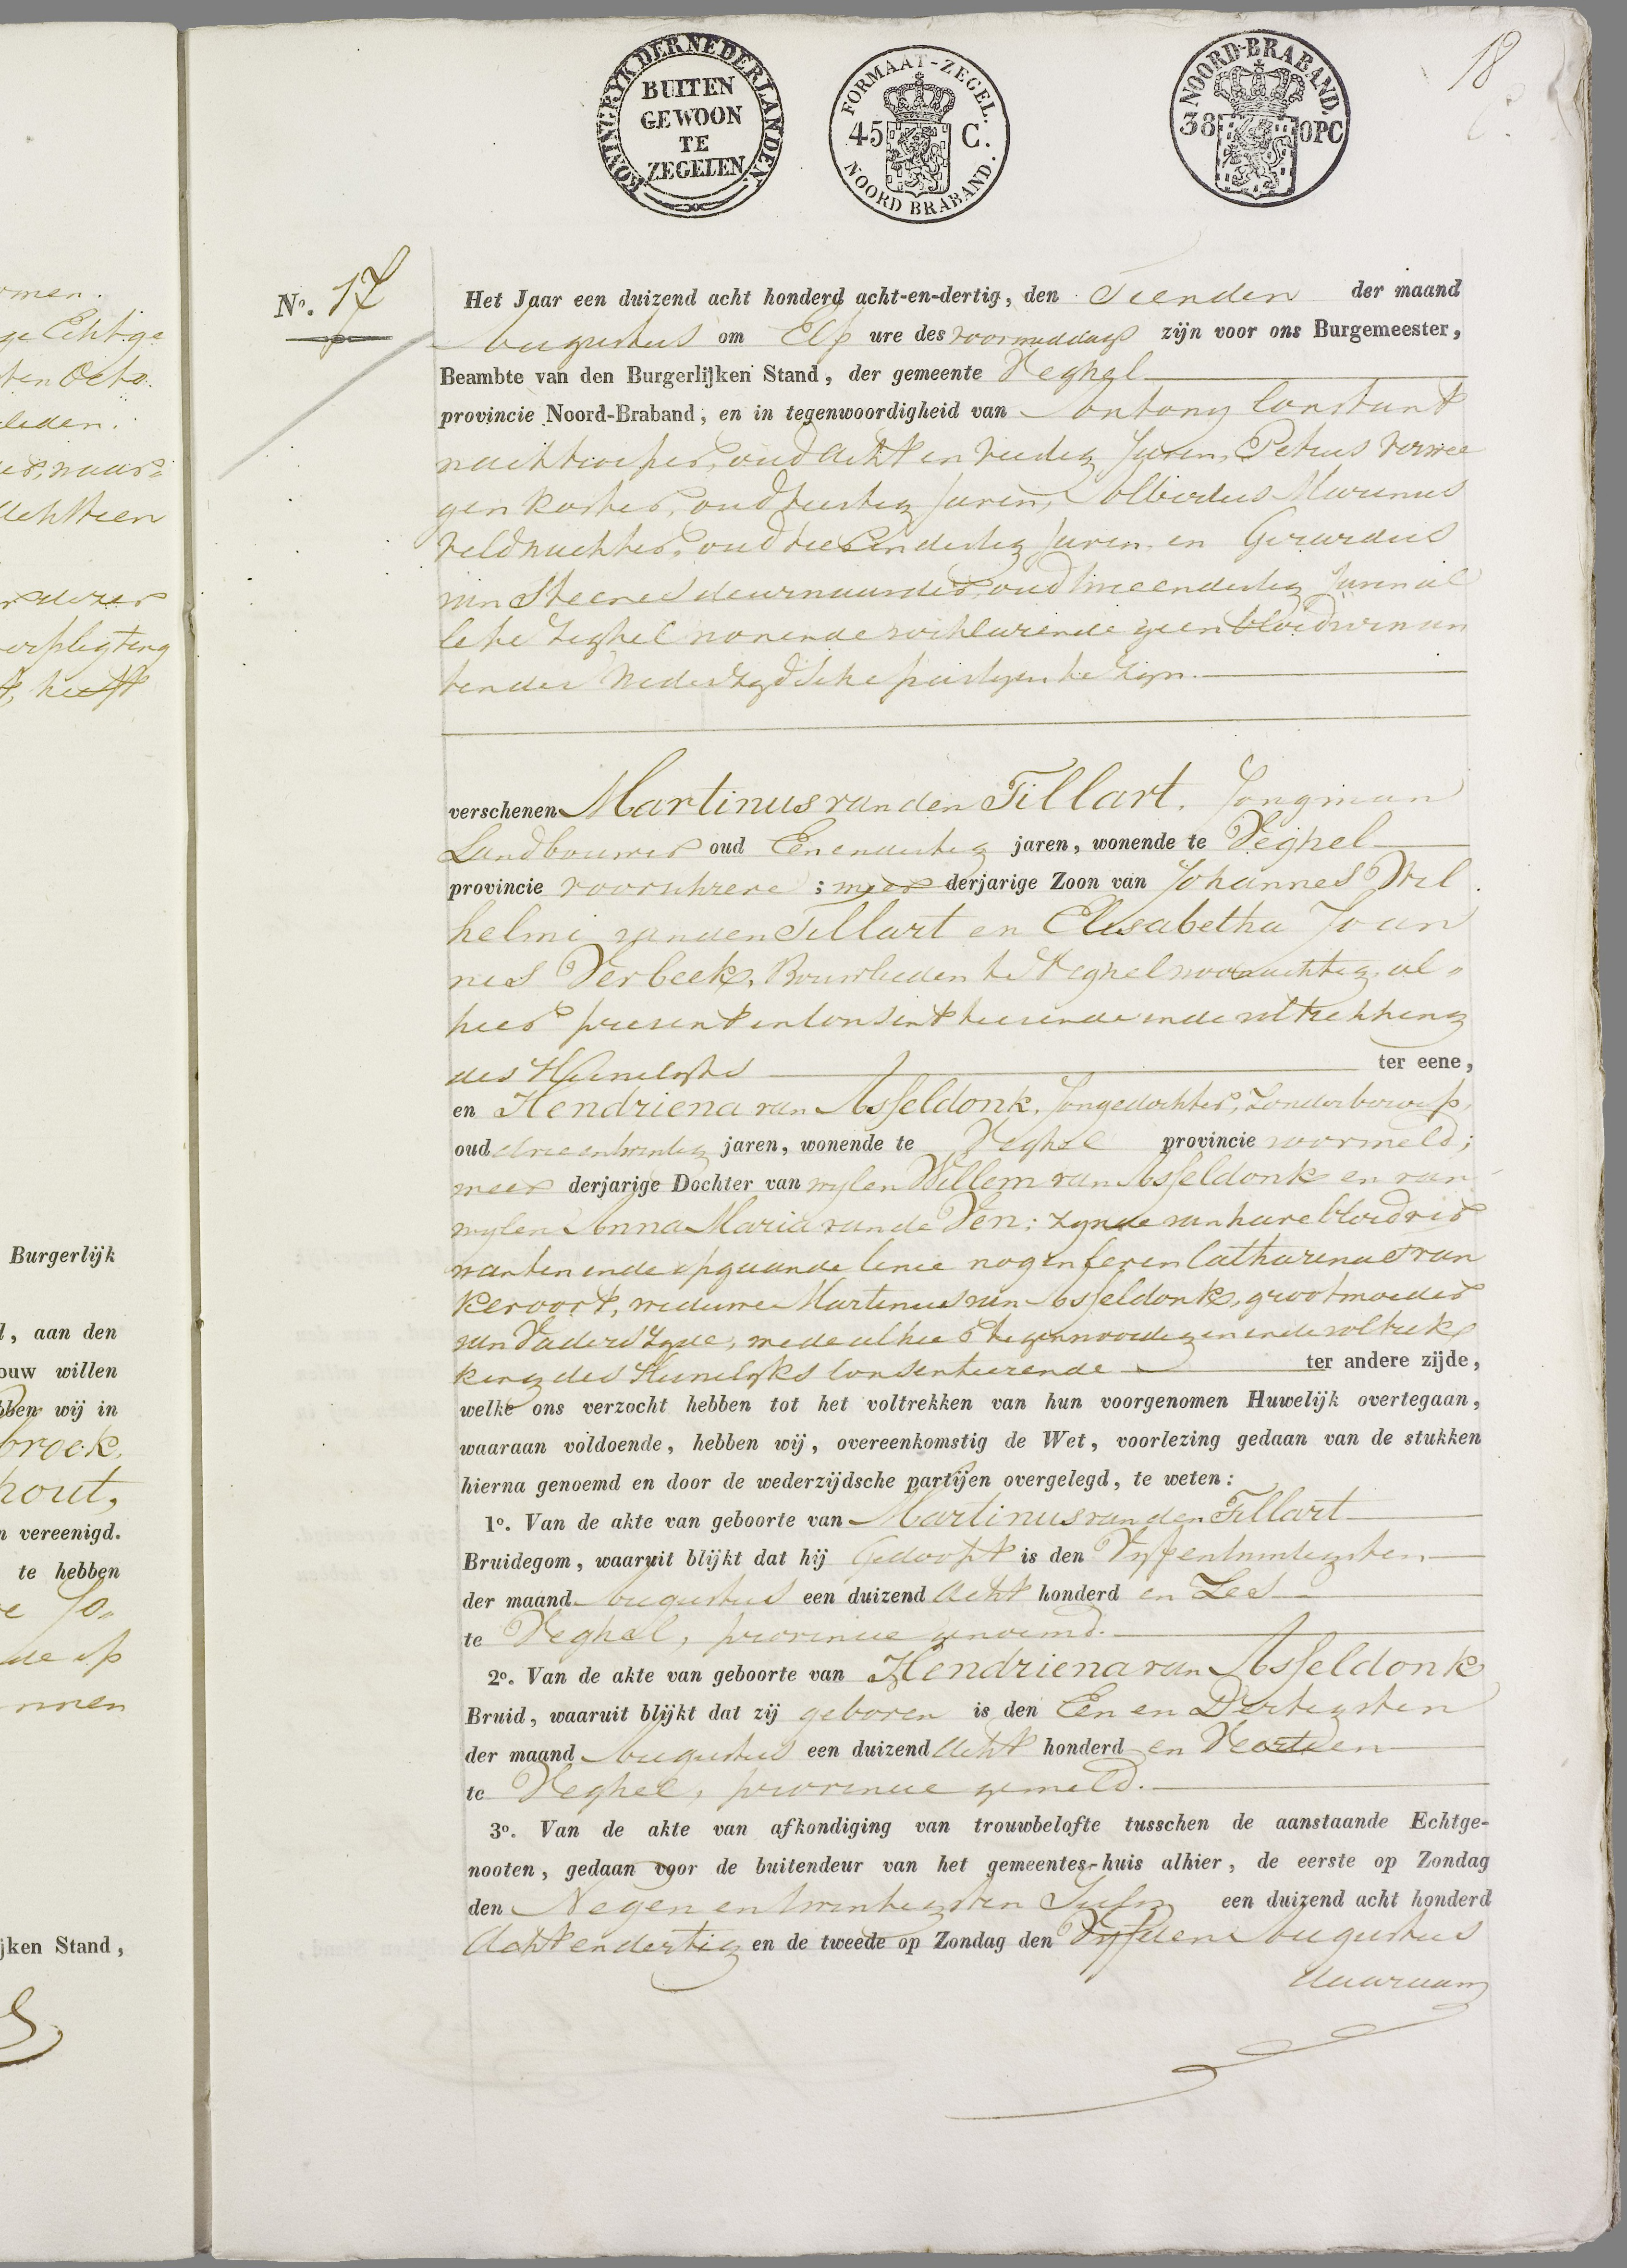 omen.
ge Echtge
ten Octo
leden.
achttien
erpligting
t, heeft
Burgerlijk
d, aan den
ouw willen
bben wij in
broek,
hout,
n vereenigd.
te hebben
e Jo=
de op
nnen
ijken Stand,
KONINGRYK DER NEDERLANDEN.
BUITEN
GEWOON
TE
ZEGELEN
FORMAAT-ZEGEL.
45 C.
NOORD BRABAND.
NOORD-BRABAND.
38 OPC
18
No. 17
Het Jaar een duizend acht honderd acht-en-dertig, den Tienden der maand
Augustus om Elf ure des voormiddags zijn voor ons Burgemeester,
Beambte van den Burgerlijken Stand, der gemeente Veghel
provincie Noord-Braband, en in tegenwoordigheid van Antony Constant
nachtroeper, oud acht en veertig Jaren, Petrus Verwee
gen Koster, oud Jaren, Albertus Marinus
Veldwachter, oud vier en dertig Jaren en Gerardus
van Steenes deurwaarder, oud twee en dertig Jaren al
le te Veghel wonende verklarende geen bloedverwan
ten der wederzydsche partyen te zyn.
verschenen Martinus van den Tillart, Jongman
Landbouwer oud Een en dertig jaren, wonende te Veghel
provincie voorschreve; meer derjarige Zoon van Johannes Wil
helmi van den Tillart en Elisabetha Joan
nes Verbeek, Bouwlieden te Veghel woonachtig, al=
hier present en consenteerende in de voltrekking
des Huwelyks ter eene,
en Hendriena van Asseldonk, Jongedochter, zonder beroep,
oud drie en twintig jaren, wonende te Veghel provincie voormeld;
meer derjarige Dochter van wylen Willem van Asseldonk en van
wylen Anna Maria van de Ven: zynde van hare bloedver
wanten in de opgaande linie nog in leven Catharina van
Kervort, weduwe Martinus van Asseldonk, grootmoeder
van Vaders Zyde, mede alhier tegenwoordig en in de voltrek
king des Huwelyks consenteerende ter andere zijde,
welke ons verzocht hebben tot het voltrekken van hun voorgenomen Huwelijk overtegaan,
waaraan voldoende, hebben wij, overeenkomstig de Wet, voorlezing gedaan van de stukken
hierna genoemd en door de wederzijdsche partijen overgelegd, te weten:
1o. Van de akte van geboorte van Martinus van den Tillart
Bruidegom, waaruit blijkt dat hij Gedoopt is den Vyfentwintigsten
der maand Augustus een duizend Acht honderd en Zes
te Veghel, provincie genoemd.
2o. Van de akte van geboorte van Hendriena van Asseldonk
Bruid, waaruit blijkt dat zij geboren is den Een en Dertigsten
der maand Augustus een duizend Acht honderd en Veertien
te Veghel, provincie gemeld.
3o. Van de akte van afkondiging van trouwbelofte tusschen de aanstaande Echtge-
nooten, gedaan voor de buitendeur van het gemeentes-huis alhier, de eerste op Zondag
den Negen en twintigsten July een duizend acht honderd
Acht en dertig en de tweede op Zondag den Vyfden Augustus
daaraan